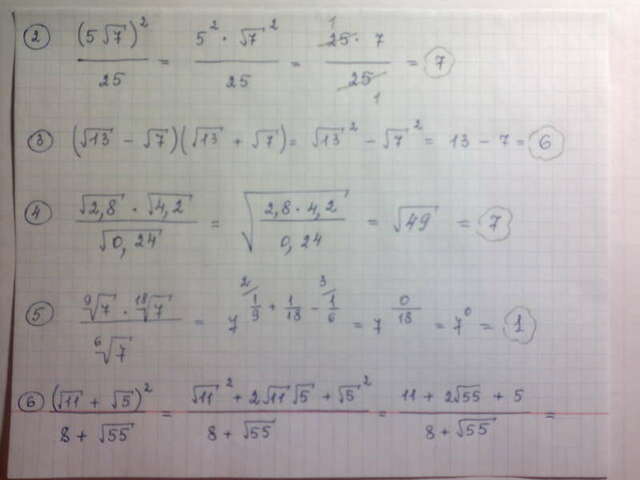 ② (5√7)² / 25 = 5² · √7² / 25 = 25 · 7 / 25 = 7
③ (√13 − √7)(√13 + √7) = √13² − √7² = 13 − 7 = 6
④ √2,8 · √4,2 / √0,24 = √(2,8 · 4,2 / 0,24) = √49 = 7
⑤ ⁹√7 · ¹⁸√7 / ⁶√7 = 7^(2/ 1/9 + 1/18 − 3/ 1/6) = 7^(0/18) = 7⁰ = 1
⑥ (√11 + √5)² / 8 + √55 = √11² + 2√11 √5 + √5² / 8 + √55 = 11 + 2√55 + 5 / 8 + √55 =